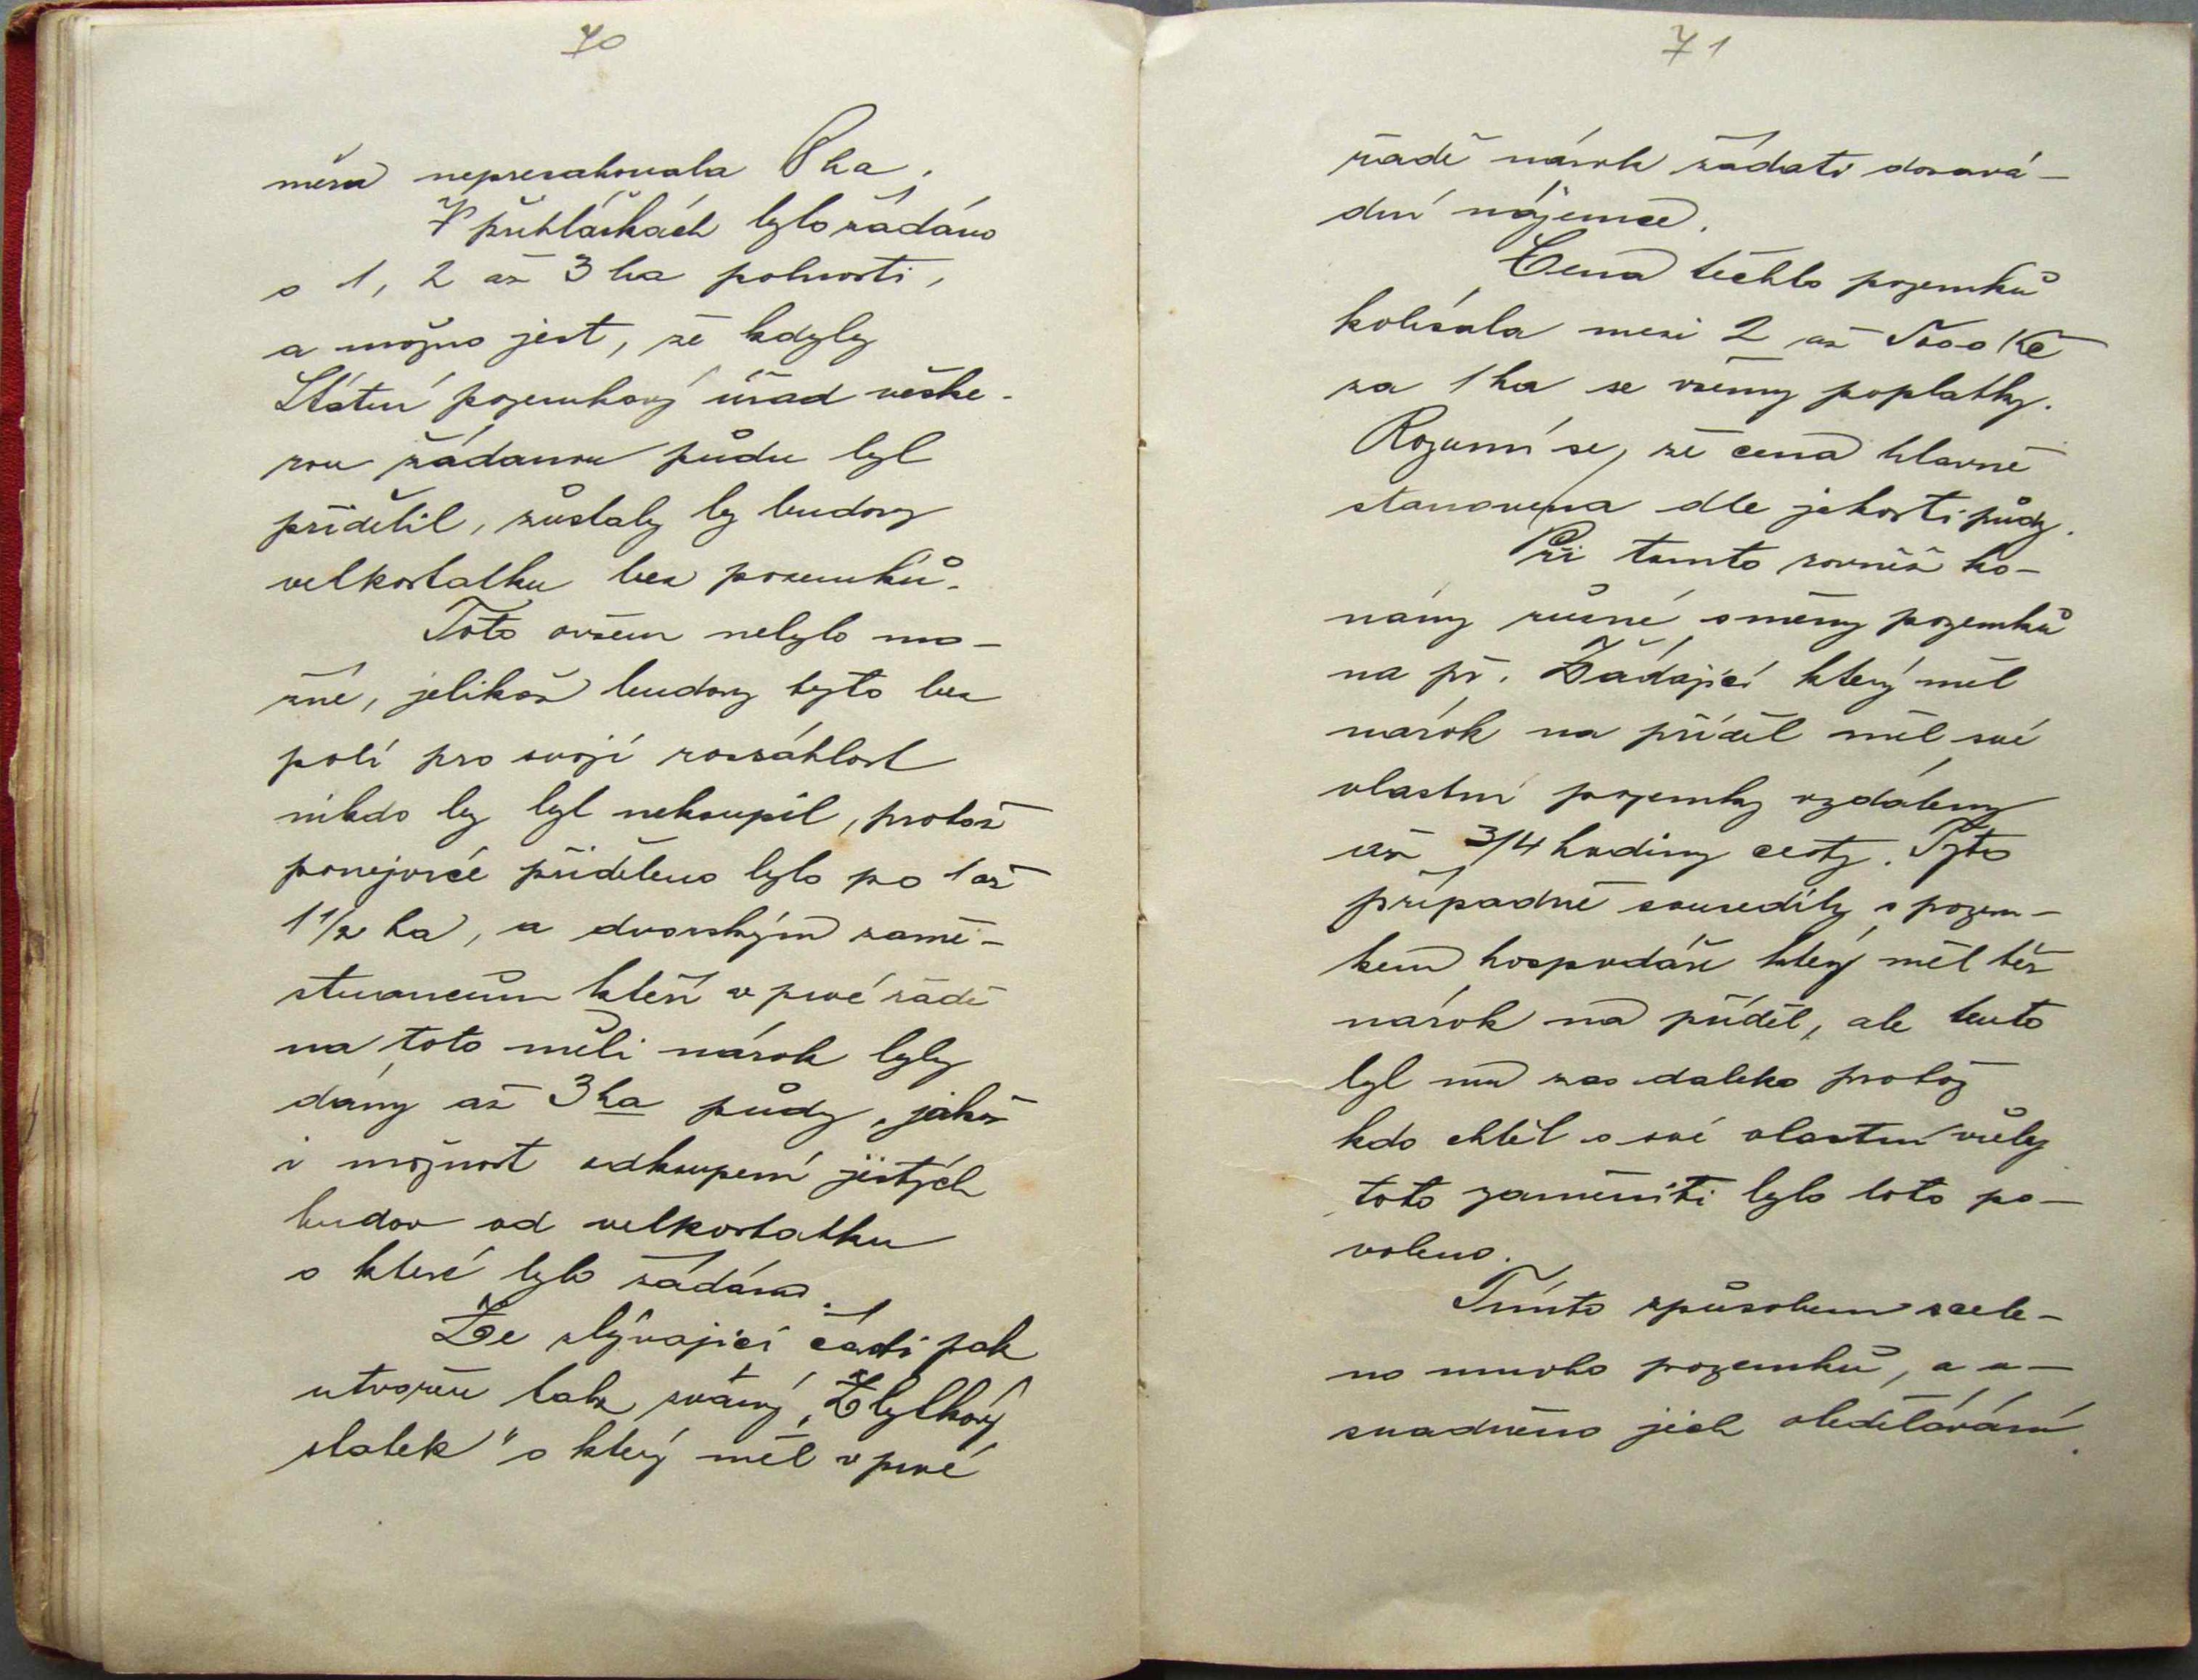 70
měra nepresahovala 8 ha.
V přihláškách bylo žádáno
o 1, 2 až 3 ha polnosti,
a možno jest, že kdyby
Státní pozemkový úřad veške-
rou žádanou půdu byl
přidělil, zůstaly by budovy
velkostatku bez pozemků.
Toto ovšem nebylo mo-
žné, jelikož budovy tyto bez
polí pro svojí rozsáhlost
nikdo by byl nekoupil, protož
ponejvíce přiděleno bylo po 1 až
1 1/2 ha, a dvorským zamě-
stnancům kteří v prvé řadě
na toto měli nárok byly
dány až 3 ha půdy, jakož
i možnost odkoupení jistých
budov od velkostatku
o které bylo žádáno.
Ze zbývající části pak
utvořen tak zvaný „Zbytkový
statek" o který měl v prvé
71
řadě nárok žádati dosavá-
dní nájemce.
Cena těchto pozemků
kolísala mezi 2 až 5000 Kč
za 1 ha se všemy poplatky.
Rozumí se, že cena hlavně
stanovena dle jakosti půdy.
Při tomto rovněž ko-
nány různé směny pozemků
na př. Žádající který měl
nárok na příděl měl své
vlastní pozemky vzdáleny
až 3/4 hodiny cesty. Tyto
případně sousedily s pozem-
kem hospodáře který měl též
nárok na příděl, ale tento
byl mu zas daleko protož
kdo chtěl o své vlastní vůly
toto zaměniti bylo toto po-
voleno.
Tímto způsobem scele-
no mnoho pozemků, a u-
snadněno jich obdělávání.